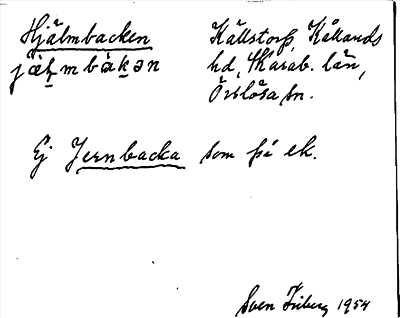 Hjälmbacken
jälmbàkən
Källstorp, Kållands
hd, Skarab. län,
Örslösa sn.
Ej Jernbacka som på ek.
Sven Friberg 1954